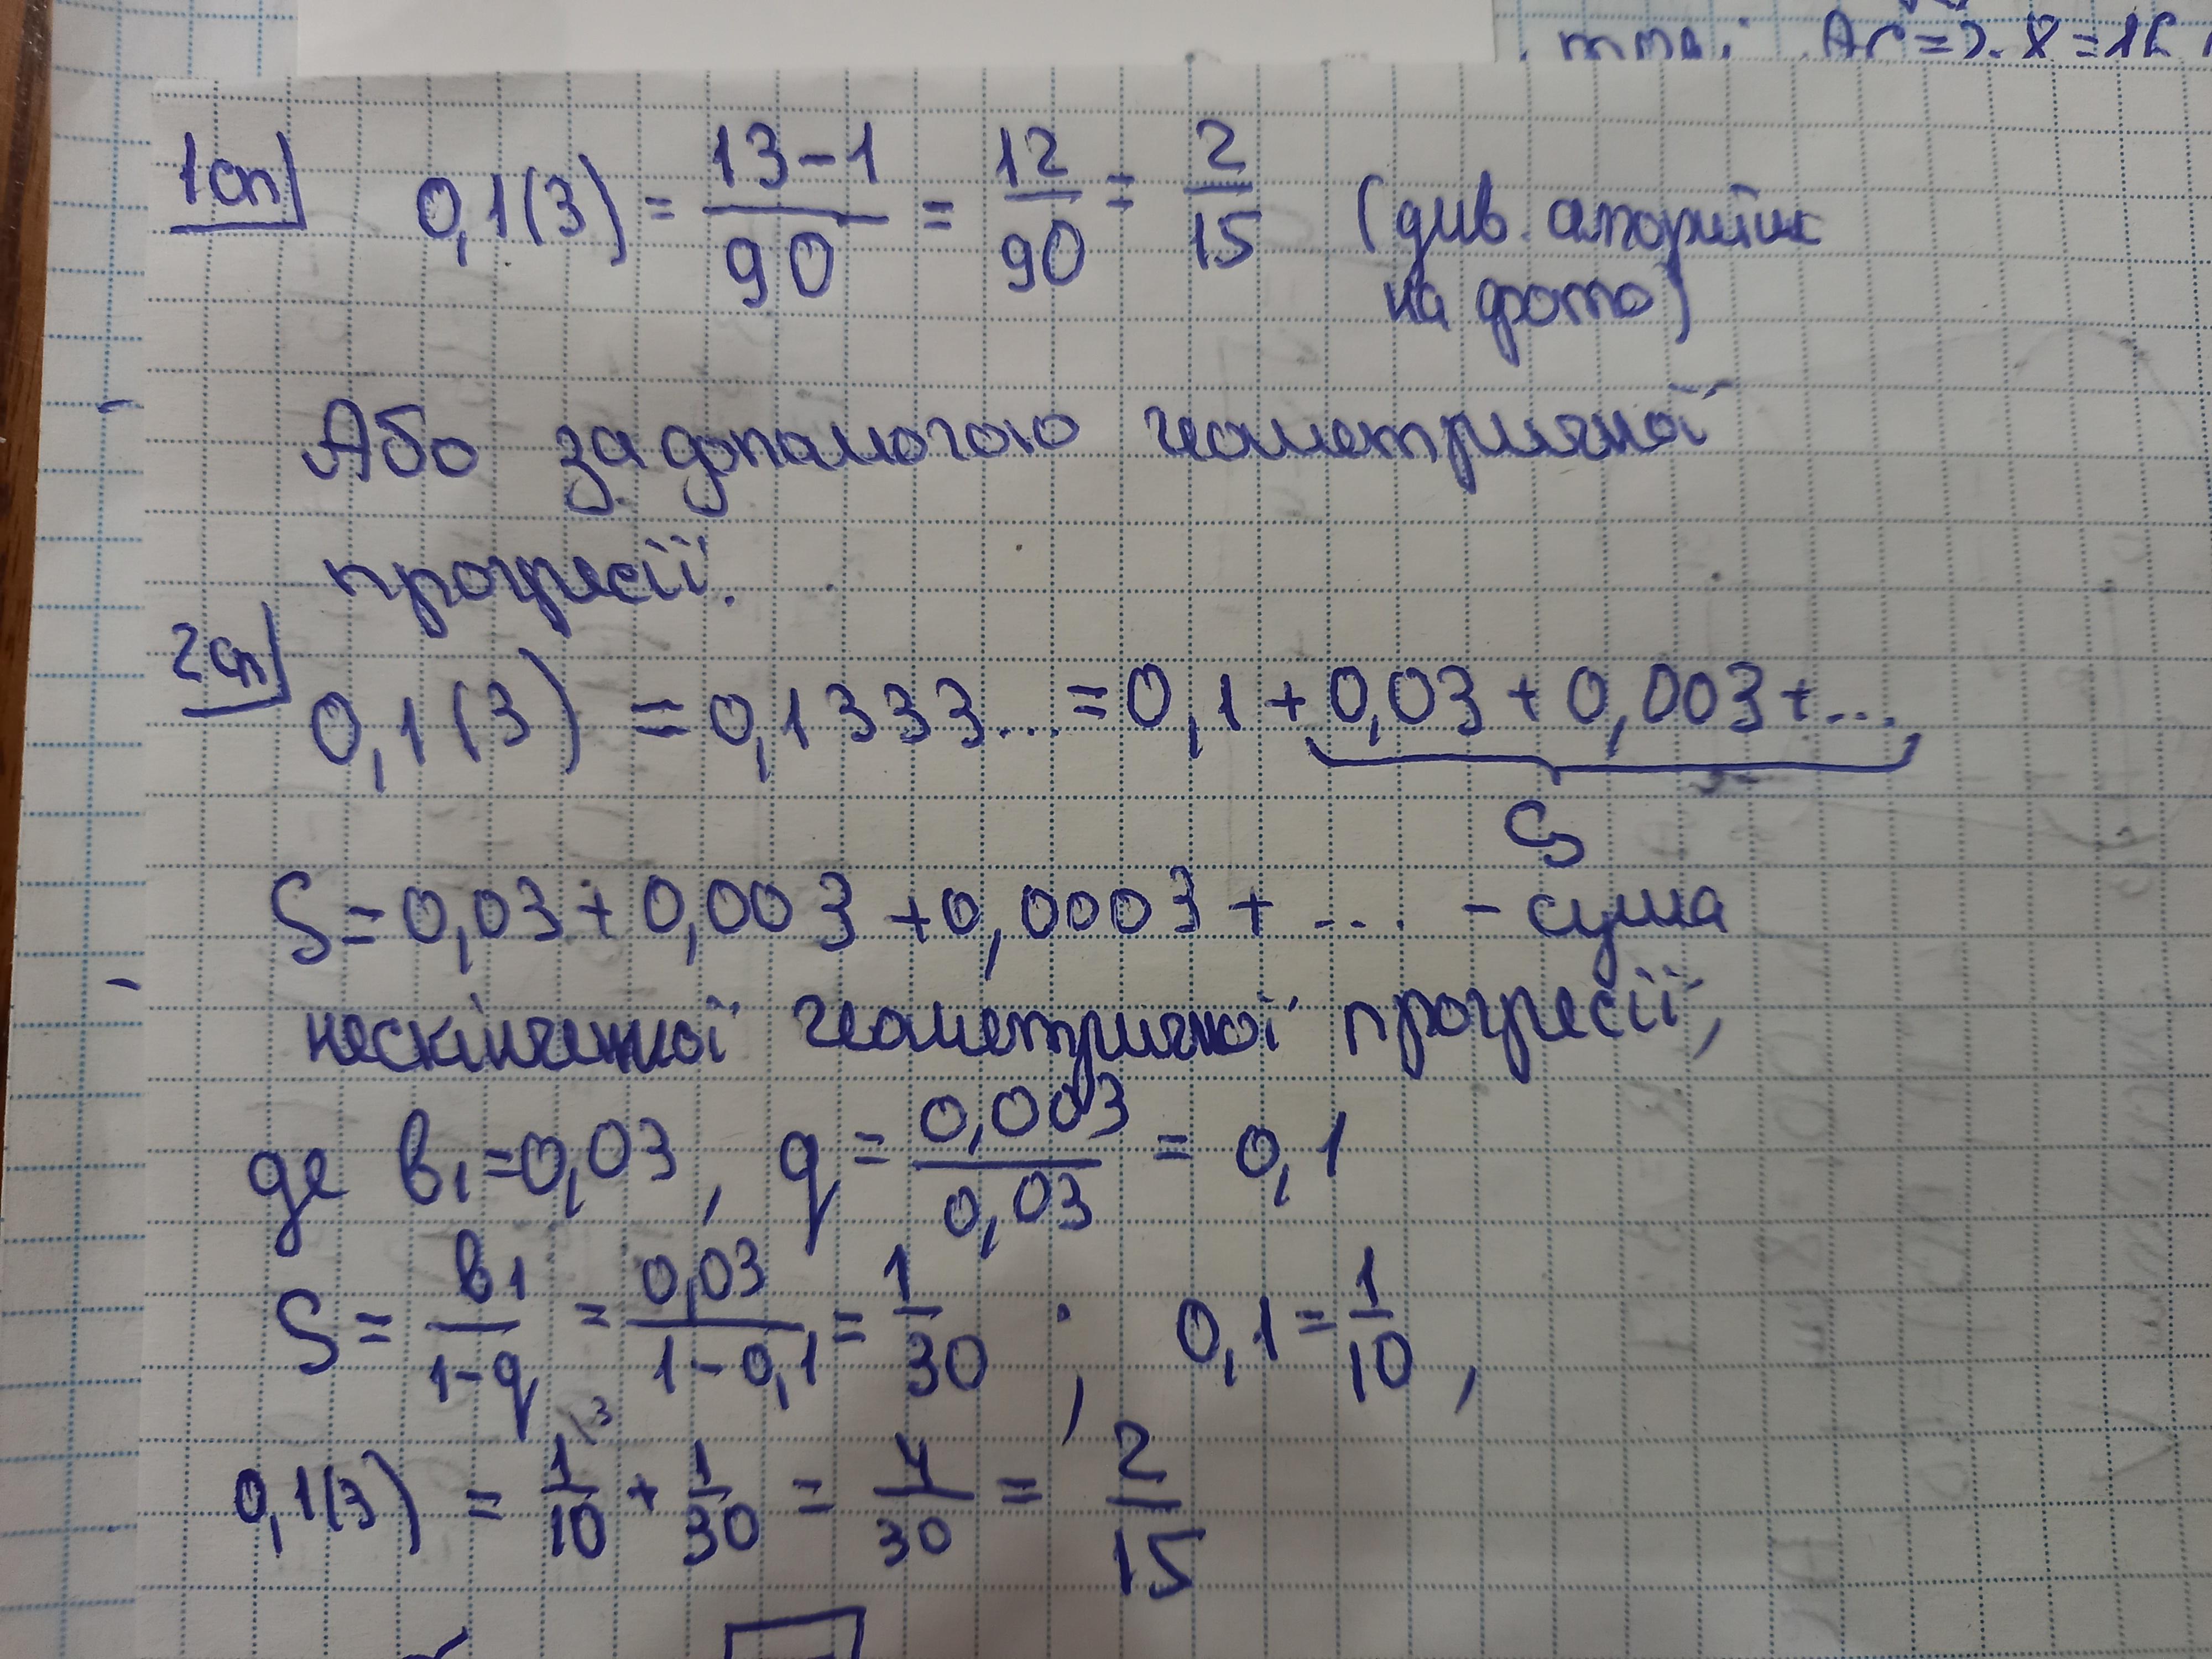 тто: AC=2·8=16
1сп) 0,1(3) = 13-1/90 = 12/90 = 2/15 (див. алгоритм
на фото)
Або за допомогою геометричної
прогресії.
2сп)
0,1(3) = 0,1333... = 0,1 + 0,03 + 0,003 + ...
S
S = 0,03 + 0,003 + 0,0003 + ... - сума
нескінченної геометричної прогресії,
де b1 = 0,03, q = 0,003/0,03 = 0,1
S = b1/1-q = 0,03/1-0,1 = 1/30 ; 0,1 = 1/10 ,
0,1(3) = 1/10 \3 + 1/30 = 4/30 = 2/15